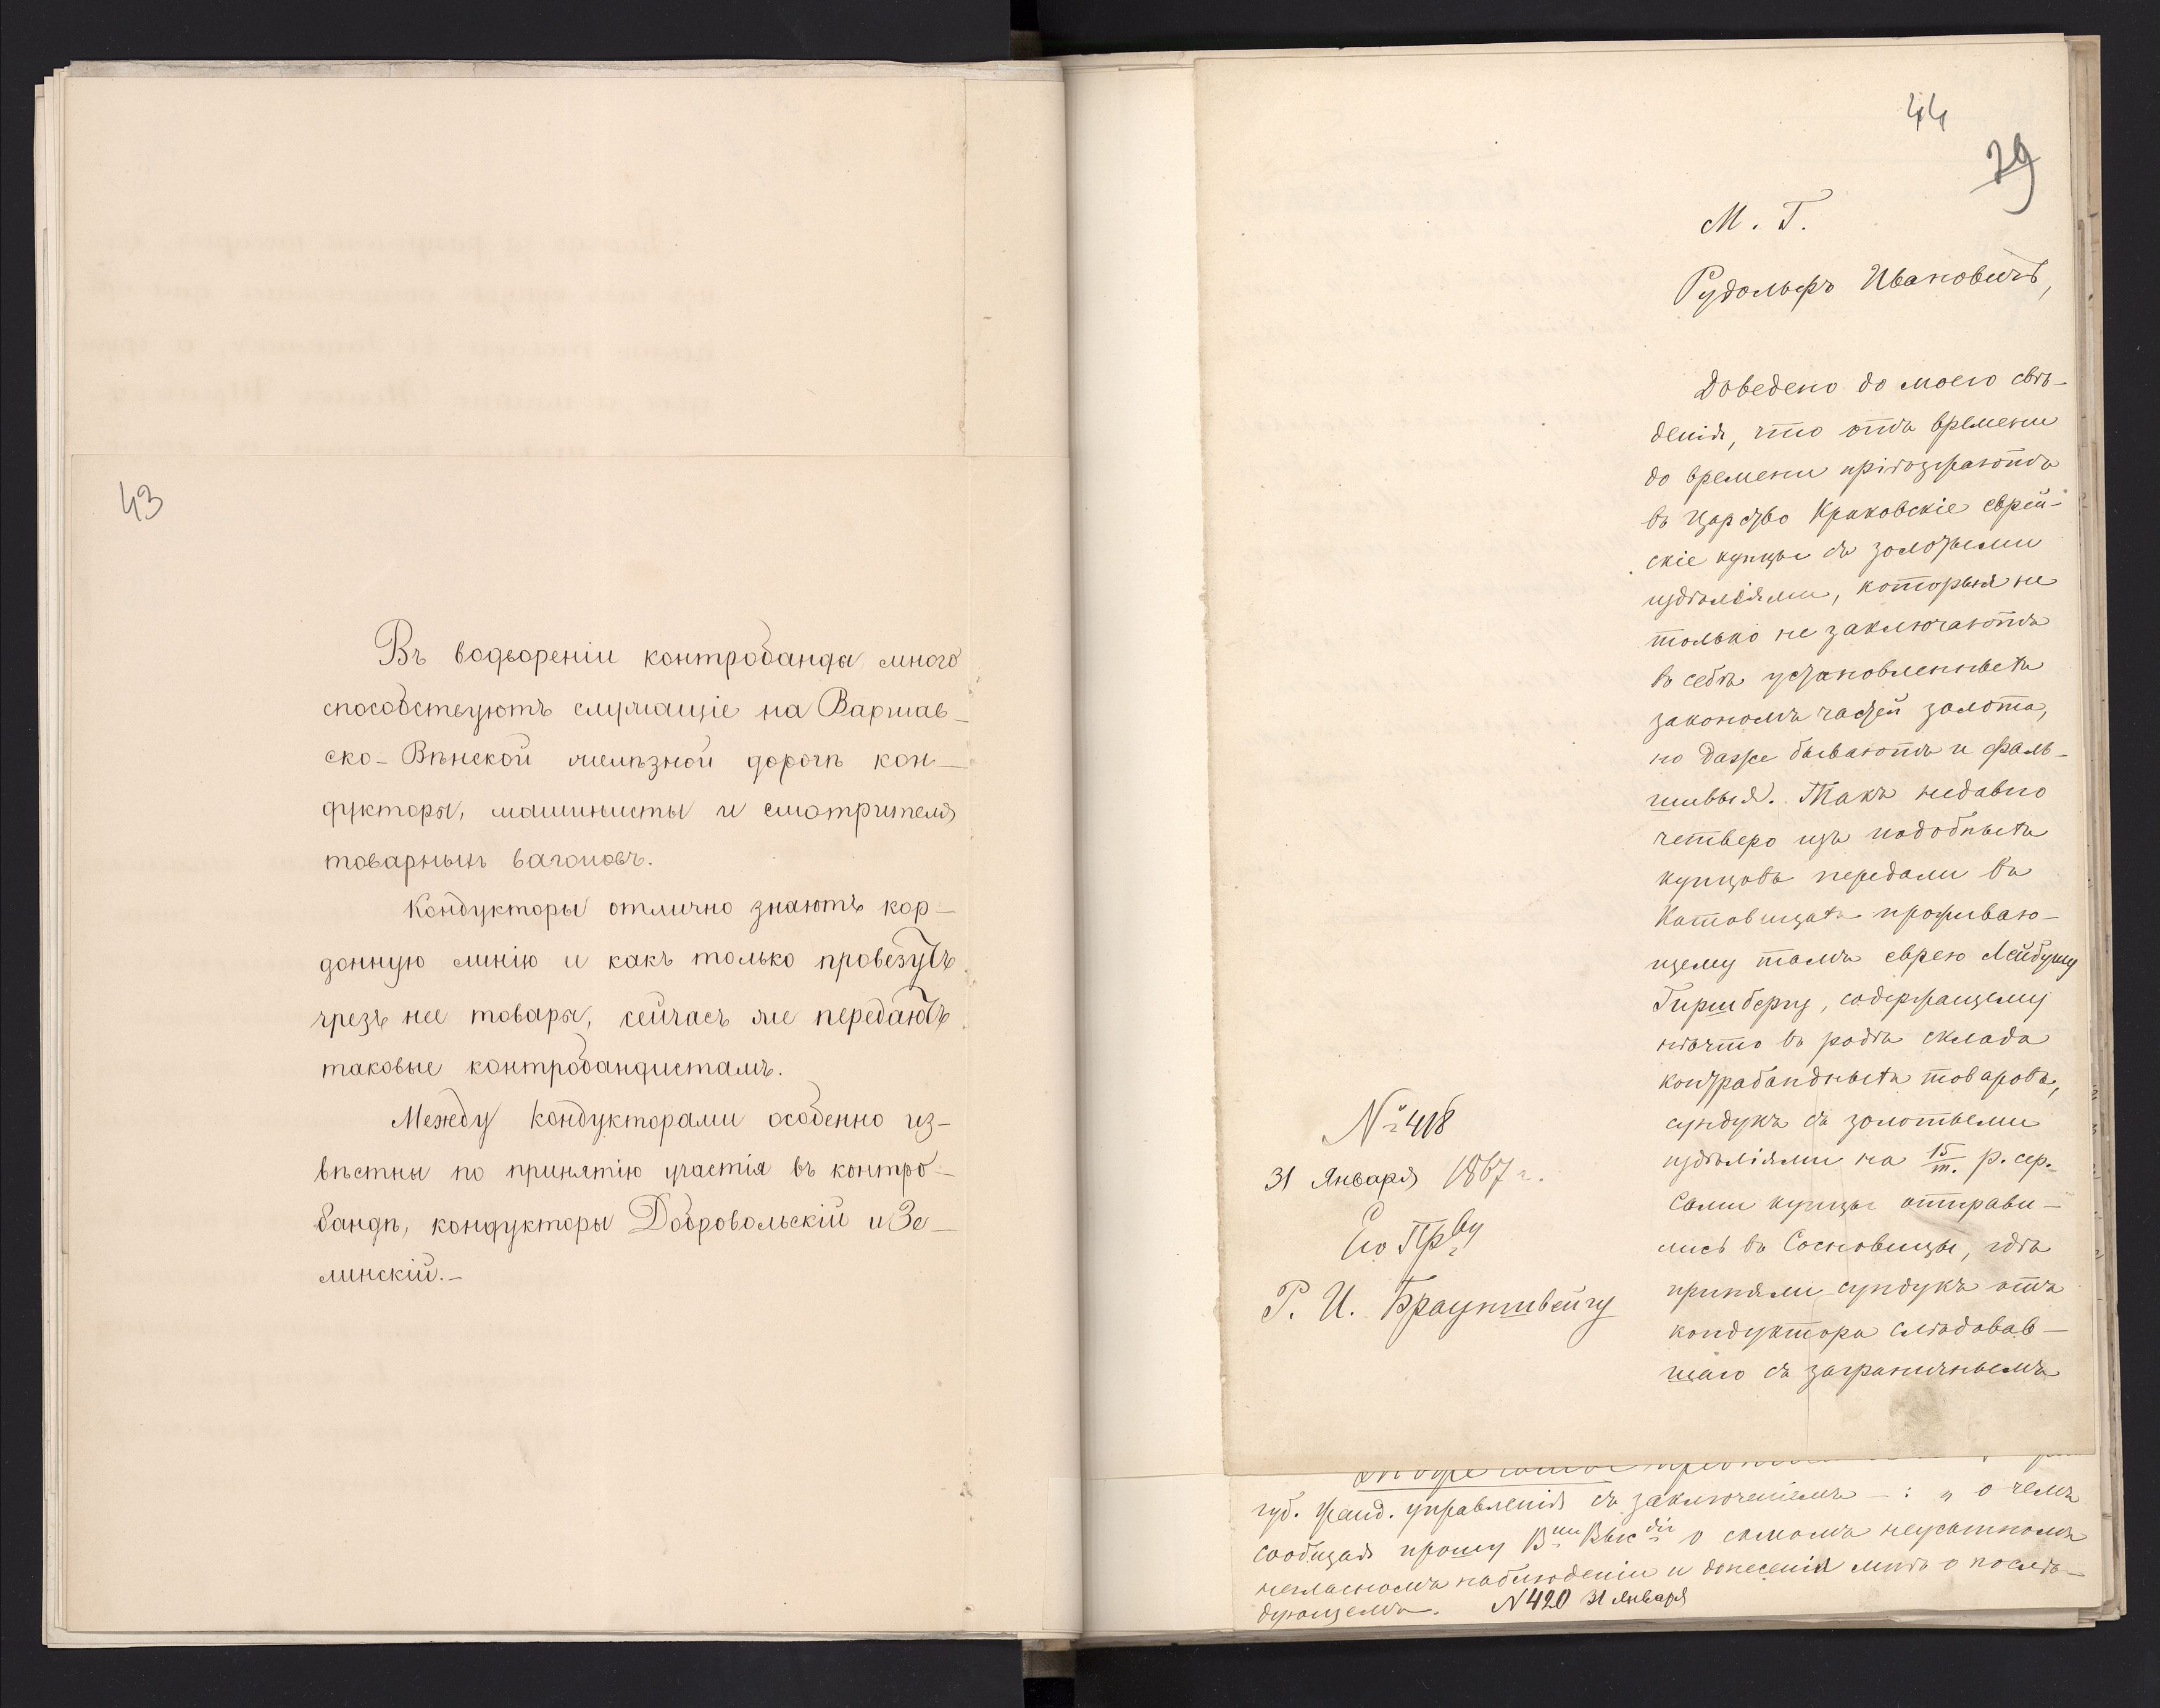 43
Въ водвореніи контробанды много
способствуютъ служащіе на Варшав-
ско-Вѣнской желѣзной дорогѣ кон-
дукторы, машинисты и смотрителя
товарныхъ вагоновъ.
Кондукторы отлично знаютъ кор-
донную линію и какъ только провезутъ
чрезъ нее товары, сейчасъ же передаютъ
таковые контробандистамъ.
Между кондукторами особенно из-
вѣстны по принятію участія въ контро-
бандѣ, кондукторы Добровольскій и Зе-
линскій.-
44
39
М. Г.
Рудольфъ Ивановичъ,
Доведено до моего свѣ-
денія, что отъ времени
до времени пріѣзжаютъ
въ Царство Краковскіе еврей-
скіе купцы съ золотыми
издѣліями, которыя не
только не заключаютъ
въ себѣ установленныхъ
закономъ частей золота,
но даже бываютъ и фаль-
шивыя. Такъ недавно
четверо изъ подобныхъ
купцовъ передали въ
Катовицахъ прожива-
щему тамъ еврею Лейбушу
Гиршбергу, содержащему
нѣчто въ родѣ склада
контрабандныхъ товаровъ,
сундукъ съ золотыми
издѣліями на 15/т. р. сер.
Сами купцы отправи-
лись въ Сосновицы, гдѣ
приняли сундукъ отъ
кондуктора слѣдовав-
шаго съ заграничнымъ
№ 418
31 Января 1867 г.
Его Пр-ву
Р. И. Брауншвейгу
губ. жанд. управленія съ заключеніемъ -: „ о чемъ
сообщая прошу В-ше Выс-діе о самомъ неусыпномъ
негласномъ наблюденіи и донесенія мнѣ о послѣ-
дующемъ. N 420 31 Января